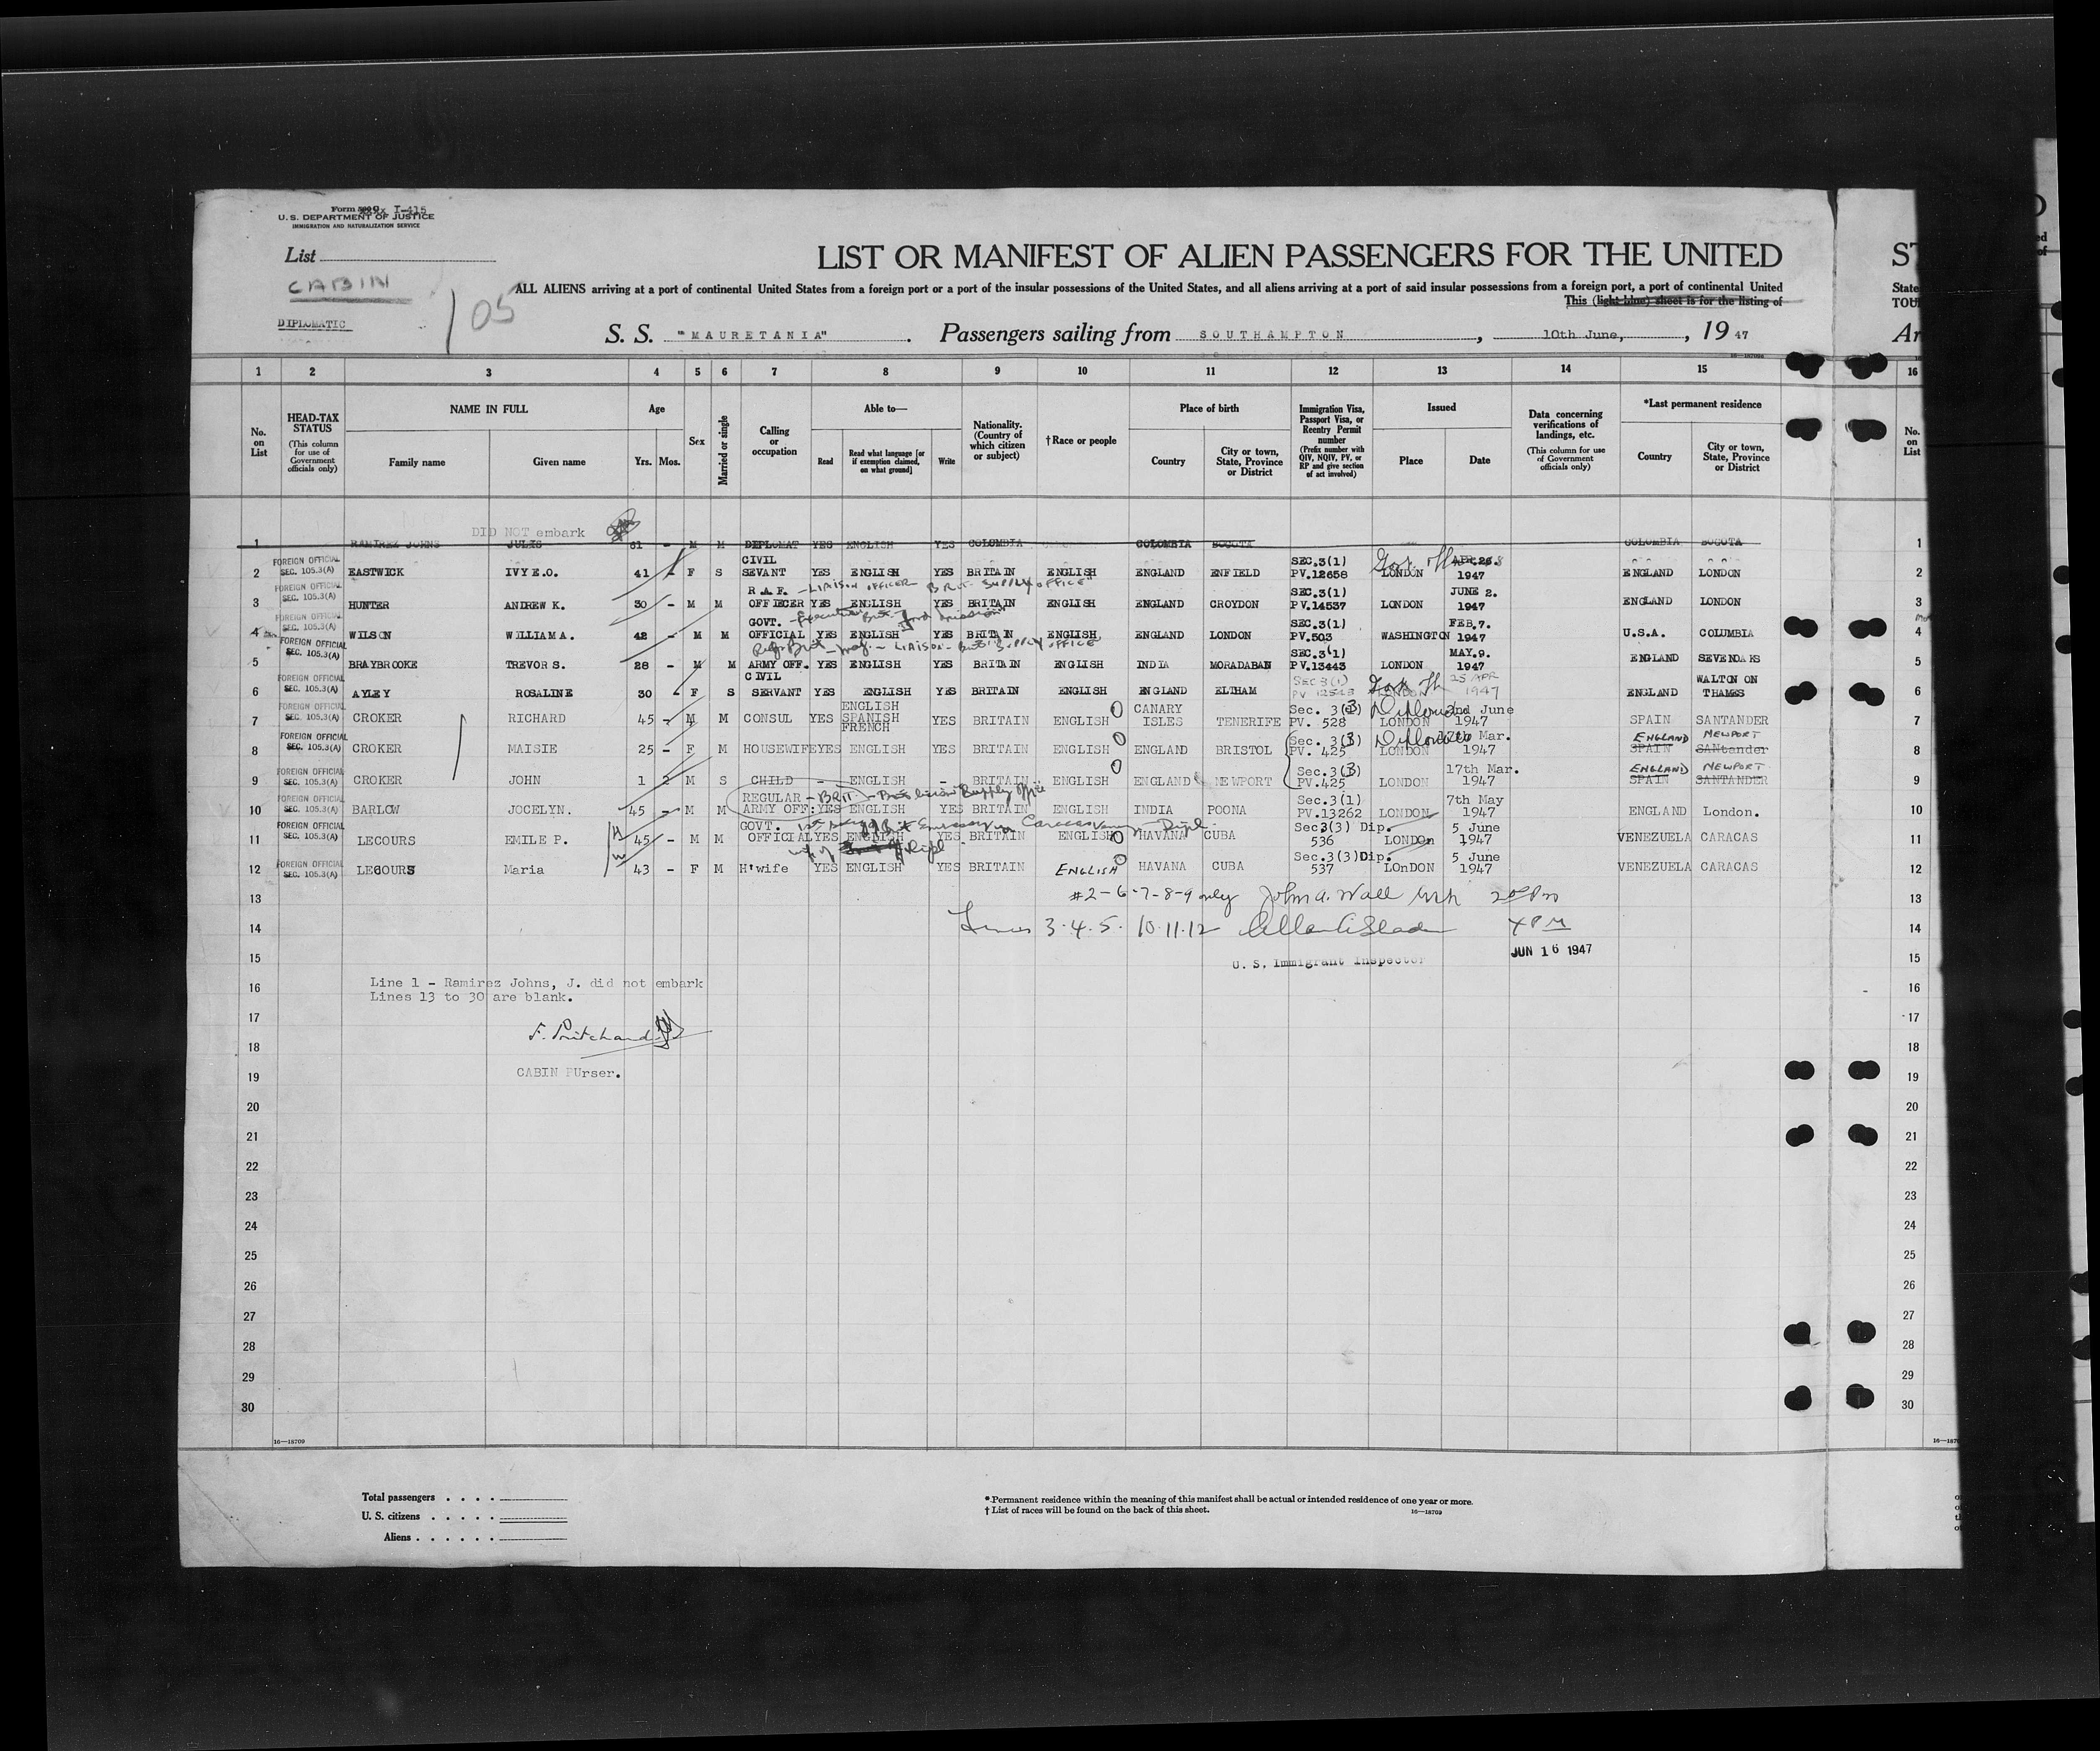 Form I-415
U. S. DEPARTMENT OF JUSTICE
IMMIGRATION AND NATURALIZATION SERVICE
List
CABIN
DIPLOMATIC
105
LIST OR MANIFEST OF ALIEN PASSENGERS FOR THE UNITED
ST
ALL ALIENS arriving at a port of continental United States from a foreign port or a port of the insular possessions of the United States, and all aliens arriving at a port of said insular possessions from a foreign port, a port of continental United
State
This (light blue) sheet is for the listing of
TOU
S. S. "MAURETANIA". Passengers sailing from SOUTHAMPTON, 10th June, , 19 47
Ar
16—18709
1 2 3 4 5 6 7 8 9 10 11 12 13 14 15 16
No. on List
HEAD-TAX STATUS (This column for use of Government officials only)
NAME IN FULL
Family name
Given name
Age
Yrs. Mos.
Sex
Married or single
Calling or occupation
Able to—
Read
Read what language [or if exemption claimed, on what ground]
Write
Nationality. (Country of which citizen or subject)
†Race or people
Place of birth
Country
City or town, State, Province or District
Immigration Visa, Passport Visa, or Reentry Permit number (Prefix number with QIV, NQIV, PV, or RP and give section of act involved)
Issued
Place
Date
Data concerning verifications of landings, etc. (This column for use of Government officials only)
*Last permanent residence
Country
City or town, State, Province or District
No. on List
DID NOT embark
1 RAMIREZ JOHNS JULIS 61 - M M DIPLOMAT YES ENGLISH YES COLOMBIA COLOMBIA BOGOTA COLOMBIA BOGOTA 1
2 FOREIGN OFFICIAL SEC. 105.3(A) EASTWICK IVY E.O. 41 - F S CIVIL SEVANT YES ENGLISH YES BRITAIN ENGLISH ENGLAND ENFIELD SEC.3(1) PV.12658 LONDON APR.26. 1947 ENGLAND LONDON 2
3 FOREIGN OFFICIAL SEC. 105.3(A) HUNTER ANDREW K. 30 - M M R.A.F. OFFICER - LIAISON OFFICER BRIT. SUPPLY OFFICE" YES ENGLISH YES BRITAIN ENGLISH ENGLAND CROYDON SEC.3(1) PV.14537 LONDON JUNE 2. 1947 ENGLAND LONDON 3
4 FOREIGN OFFICIAL SEC. 105.3(A) WILSON WILLIAM A. 42 - M M GOVT. OFFICIAL - Executive Brit. Food Mission YES ENGLISH YES BRITAIN ENGLISH ENGLAND LONDON SEC.3(1) PV.503 WASHINGTON FEB.7. 1947 U.S.A. COLUMBIA 4
5 FOREIGN OFFICIAL SEC. 105.3(A) BRAYBROOKE TREVOR S. 28 - M M ARMY OFF. LIAISON - Brit. SUPPLY OFFICE YES ENGLISH YES BRITAIN ENGLISH INDIA MORADABAN SEC.3(1) PV.13443 LONDON MAY.9. 1947 ENGLAND SEVENOAKS 5
6 FOREIGN OFFICIAL SEC. 105.3(A) AYLEY ROSALINE 30 - F S CIVIL SERVANT YES ENGLISH YES BRITAIN ENGLISH ENGLAND ELTHAM SEC 3(1) LONDON 25 APR 1947 ENGLAND WALTON ON THAMES 6
7 FOREIGN OFFICIAL SEC. 105.3(A) CROKER RICHARD 45 - M M CONSUL YES ENGLISH SPANISH FRENCH YES BRITAIN ENGLISH CANARY ISLES TENERIFE Sec. 3(3) PV. 528 Diplomat LONDON 2nd June 1947 SPAIN SANTANDER 7
8 FOREIGN OFFICIAL SEC. 105.3(A) CROKER MAISIE 25 - F M HOUSEWIFE YES ENGLISH YES BRITAIN ENGLISH ENGLAND BRISTOL Sec. 3(3) PV. 425 Diplomat LONDON Mar. 1947 ENGLAND NEWPORT SPAIN SANtander 8
9 FOREIGN OFFICIAL SEC. 105.3(A) CROKER JOHN 1 2 M S CHILD - ENGLISH - BRITAIN ENGLISH ENGLAND NEWPORT Sec.3(3) PV.425 LONDON 17th Mar. 1947 ENGLAND NEWPORT SPAIN SANTANDER 9
10 FOREIGN OFFICIAL SEC. 105.3(A) BARLOW JOCELYN. 45 - M M REGULAR - BRIT ARMY OFF: YES ENGLISH YES BRITAIN ENGLISH INDIA POONA Sec.3(1) PV.13262 LONDON 7th May 1947 ENGLAND London. 10
11 FOREIGN OFFICIAL SEC. 105.3(A) LECOURS EMILE P. H 45 - M M GOVT. OFFICIAL YES ENGLISH YES BRITAIN ENGLISH HAVANA CUBA Sec3(3) Dip. 536 LONDOn 5 June 1947 VENEZUELA CARACAS 11
12 FOREIGN OFFICIAL SEC. 105.3(A) LECOURS Maria W 43 - F M H'wife wife of Dipl. YES ENGLISH YES BRITAIN ENGLISH HAVANA CUBA Sec.3(3)Dip. 537 LOnDON 5 June 1947 VENEZUELA CARACAS 12
13 #2-6-7-8-9 only John A. Wall 13
14 Lines 3.4.5. 10.11.12 4 PM 14
JUN 16 1947
15 U. S. Immigrant Inspector 15
Line 1 - Ramirez Johns, J. did not embark
16 16
Lines 13 to 30 are blank.
17 17
F. Pritchard
18 18
19 CABIN PUrser. 19
20 20
21 21
22 22
23 23
24 24
25 25
26 26
27 27
28 28
29 29
30 30
16—18709
Total passengers . . . .
U. S. citizens . . . . .
Aliens . . . . . .
*Permanent residence within the meaning of this manifest shall be actual or intended residence of one year or more.
† List of races will be found on the back of this sheet.
16—18709